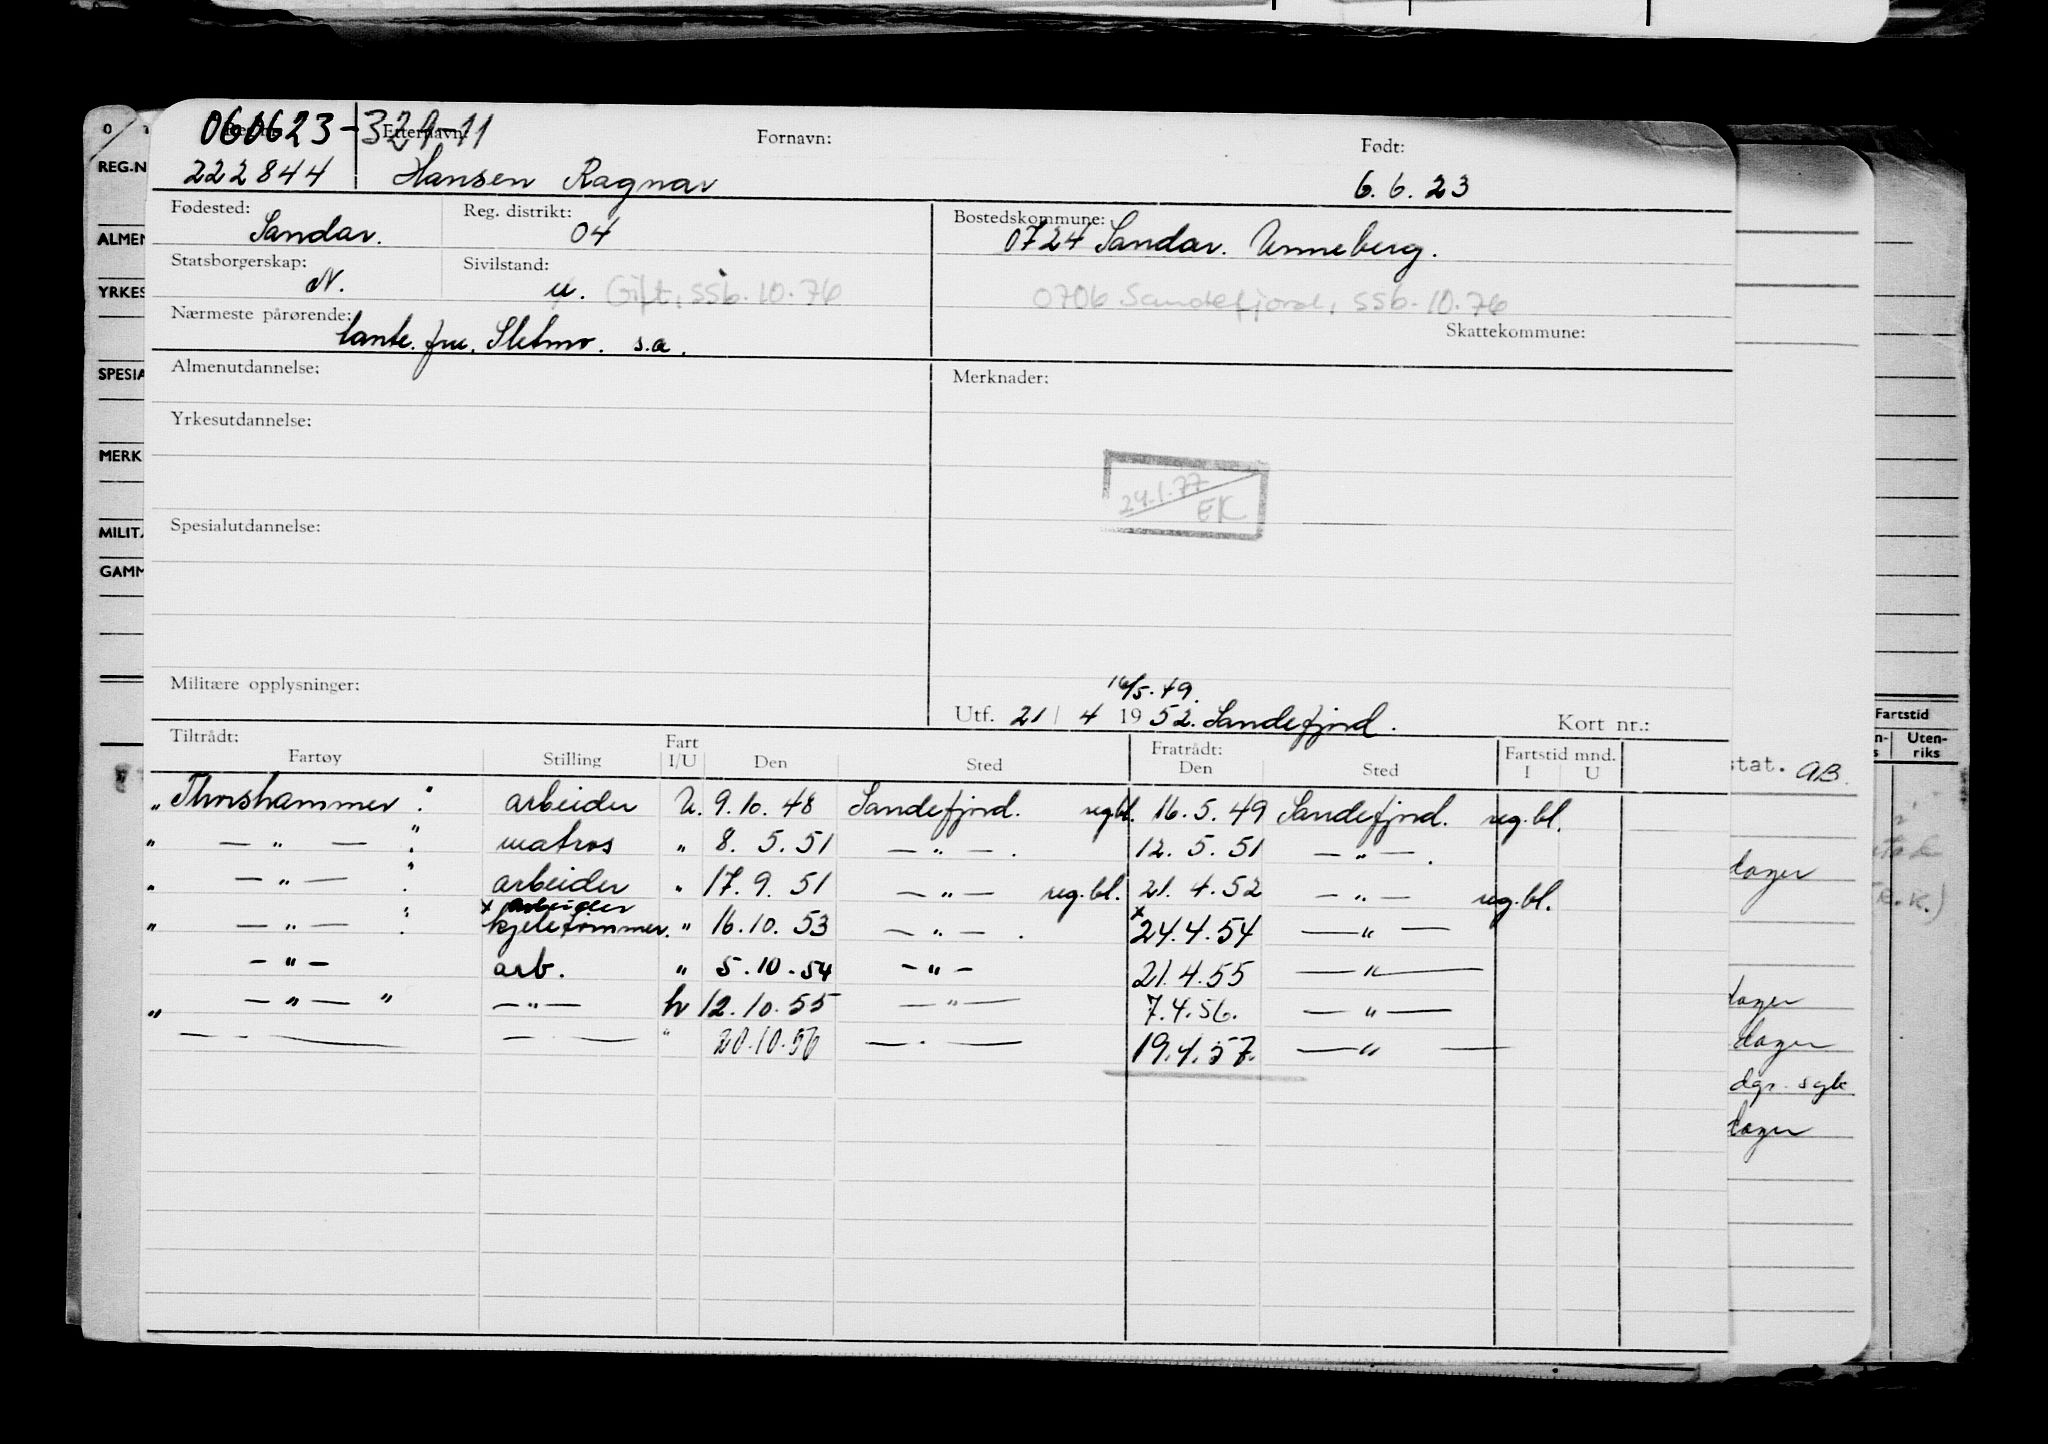 060623-329-11
Etternavn: Fornavn: Født:
222844 Hansen Ragnar 6.6.23
Fødested: Sandar. Reg. distrikt: 04 Bostedskommune: 0724 Sandar. Unneberg.
Statsborgerskap: N. Sivilstand: u. Gift, SSB.10.76 0706 Sandefjord, SSB.10.76
Nærmeste pårørende: tante. fru. Sletmo. s.a. Skattekommune:
Almenutdannelse: Merknader:
Yrkesutdannelse:
24.1.77 EK
Spesialutdannelse:
Militære opplysninger: 16/5.49.
Utf. 21/4 1952. Sandefjord. Kort nr.:
Tiltrådt: Fart Fratrådt: Fartstid mnd.
Fartøy Stilling I/U Den Sted Den Sted I U
„ Thorshammer ". arbeider U. 9.10.48 Sandefjord. reg.bl. 16.5.49 Sandefjord. reg.bl.
" — " — " matros " 8.5.51 — " — . 12.5.51 — " — .
" — " — " arbeider " 17.9.51 — " — reg.bl. 21.4.52 — " — reg.bl.
x arbeider
" — " — " kjeletømmer. " 16.10.53 — " — . x 24.4.54 — " —
— " — arb. " 5.10.54 — " — 21.4.55 — " —
„ — " — " — " — hv 12.10.55 — " — 7.4.56. — " —
— . — — . — " 20.10.56 — . — 19.4.57. — " —
REG.N
ALMEN
YRKES
SPESIA
MERK
MILITÆ
GAMM
Fartstid
Uten-
riks
stat. AB.
dager
dager
dager
dgr. syk
dager